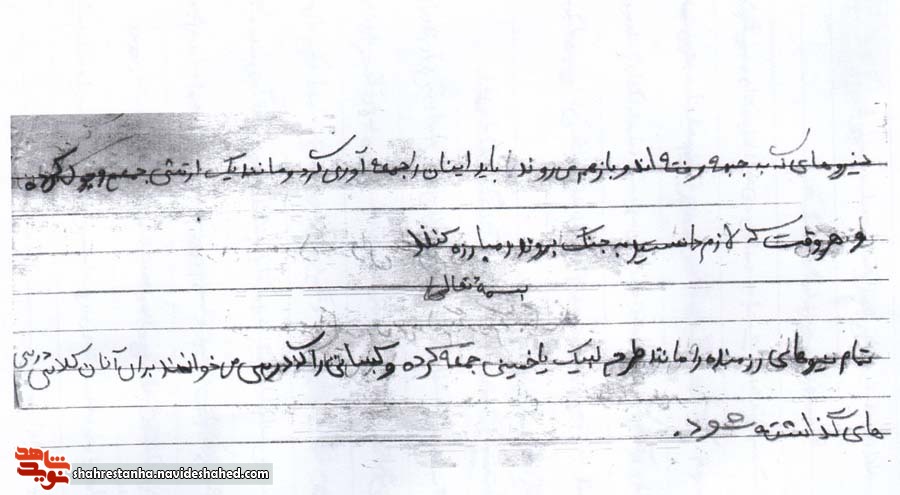 نیروهای که به جبهه رفته اند و باز هم می روند باید اینان را جمعه آوری کرد و مانند یک ارتشی جمع و جور کرده
و هر وقت که لازم دانستید به جنگ بروند و مبارزه کنند
بسمه تعالی
تمام نیروهای رزمنده را مانند طرح لبیک یا خمینی جمعه کرده و کسانی را که درس می خوانند برای آنان کلاس درسی
های گذاشته شود.
نوید شاهد
shahrestanha.navideshahed.com